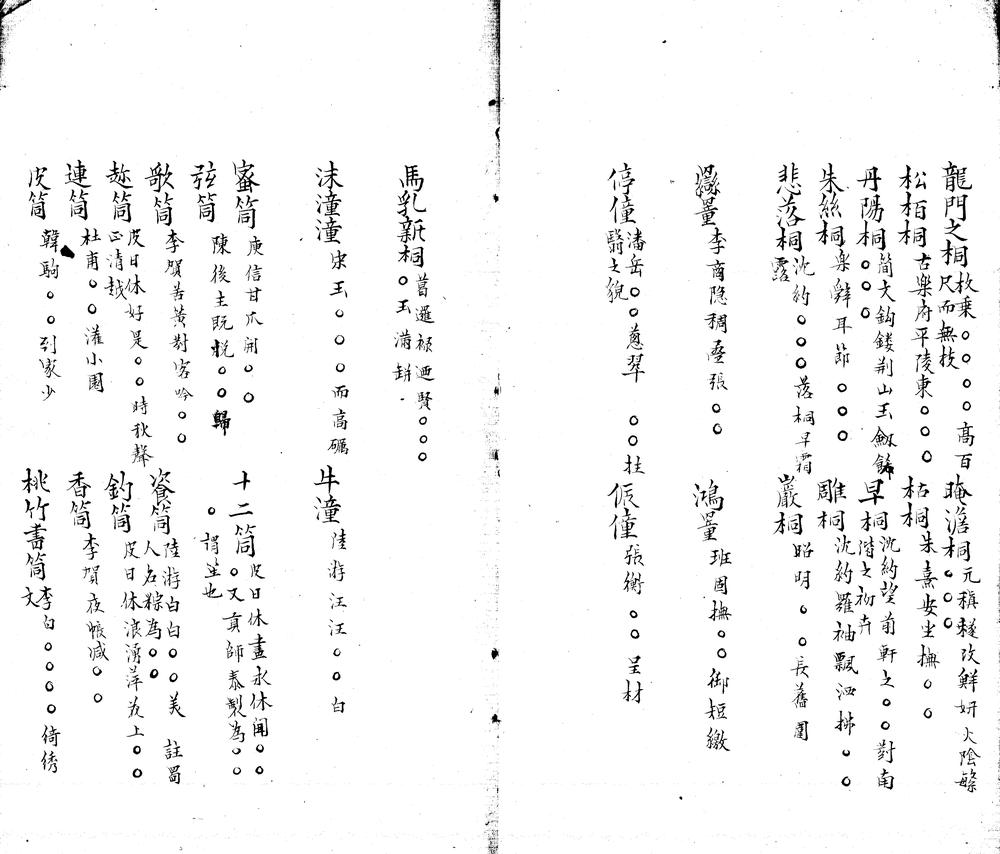 龍門之桐 枚乘○○○○高百尺而無枝
晻澹桐 元稹○○○
松栢桐 古樂府平陵東○○○
枯桐 朱熹安坐撫○○
丹陽桐 簡文鈎鏤荆山玉○○○
早桐 沈約望前軒之○○對南階之初卉
朱絲桐 樂辨耳節○○○
雕桐 沈約羅袖飄洒拂○○
悲落桐 沈約○○○落桐早霜露
巖桐 昭明○○長舊圍
李商隐稠疊張○○
鴻 班固撫○○御短繳
停僮 潘岳○○蔥翠 ○○拄翳之貌
侲僮 張衡○○呈材
馬乳新桐 ○玉滿缾 賢○○○
沫潼潼 宋玉○○○而高礪
牛潼 陸游汪汪○○白
蜜筒 庾信甘瓜開○○
十二筒 皮日休晝永休聞○○○又貢師泰製為○○○謂笙也
弦筒 陳後主既桄○○歸
歌筒 李賀苦黃對客吟○○
餈筒 陸游白白○○美 註蜀人名粽為○○
趂筒 皮日休好是○○時秋聲正清越
釣筒 皮日休浪湧萍於上○○
連筒 杜甫○○灌小園
香筒 李賀夜帳減○○
皮筒 韓駒○○到家少
桃竹書筒 李白○○○○綺綉文